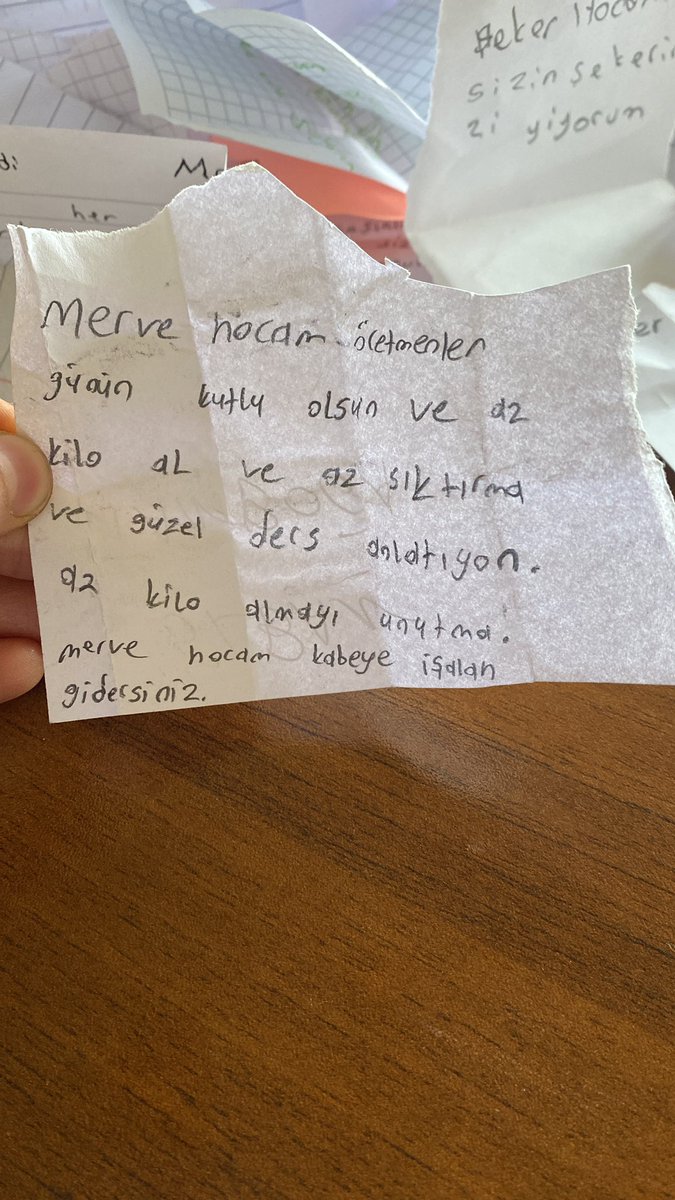 Şeker Hocam
sizin şekeri
zi yiyorum
her
Merve hocam öğetmenler
günün kutlu olsun ve az
kilo al ve az sıktırma
ve güzel ders anlatıyon.
az kilo almayı unutma.
merve hocam kabeye işalah
gidersiniz.